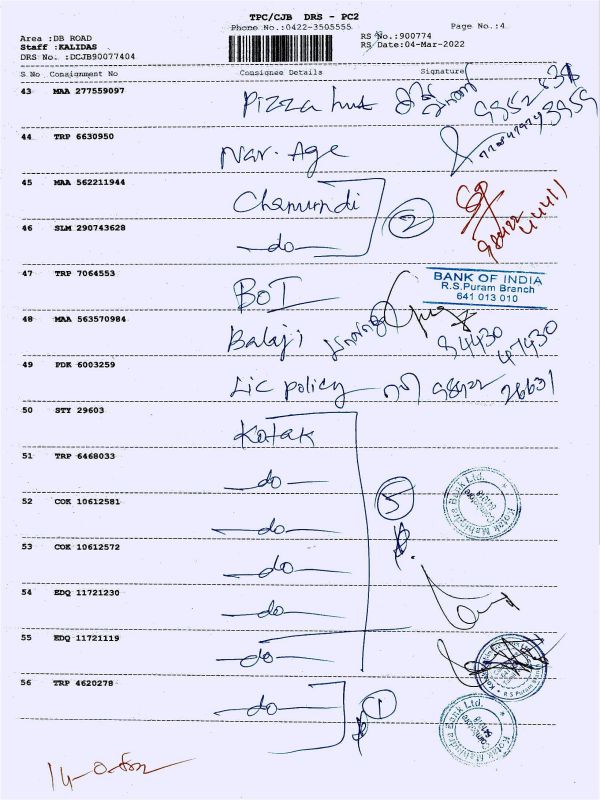 TPC/CJB DRS - PC2
Phone No.:0422-3505555
Page No.:4
Area :DB ROAD
RS No.:900774
Staff :KALIDAS
RS Date:04-Mar-2022
DRS No. :DCJB90077404
S No Consignment No Consignee Details Signature
43 MAA 277559097 Pizza hut
44 TRP 6630950 Nar. Age
45 MAA 562211944 Chamundi
46 SLM 290743628 -do- 2
47 TRP 7064553 BOI
BANK OF INDIA
R.S.Puram Branch
641 013 010
48 MAA 563570984 Balaji 94430 47430
49 PDK 6003259 Lic policy 98422 26631
50 STY 29603 Kotak
51 TRP 6468033 -do-
Kotak Mahindra Bank Ltd.
52 COK 10612581 -do- 5
53 COK 10612572 -do-
54 EDQ 11721230 -do-
55 EDQ 11721119 -do-
R S Puram
56 TRP 4620278 -do- 1
Kotak Mahindra Bank Ltd.